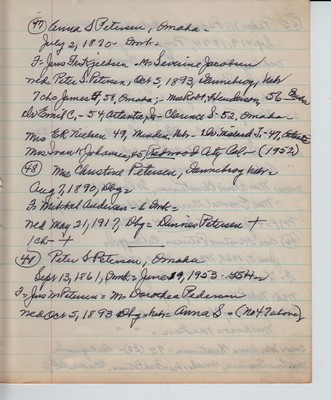 (47) Anna S Petersen, Omaha -
July 2, 1870 - Dmk -
F= Jens Fr Kjeldsen - M= Severine Jacobsen
Med Peter S. Petersen, Oct 5, 1893, Dannebrog, Nebr
7 chs James F, 58, Omaha; - Mrs Robt Henderson, 56
Dr. Emil C, - 54 Atlanta, Ga - Clarence S - 52, Omaha
Mrs E.R. Nielsen 49, Minden, Nebr - Dr. Misead T - 47, Atlanta
Mrs Frank Johansen, 45, Redwood City Cal - (1952)
(48) Mrs Christine Petersen, Dannebrog Nebr -
Aug 7, 1890, Dbg =
F= Mikkel Andersen - b Dmk -
Med May 21, 1917, Dbg = Petersen +
1 ch - +
(49) Peter S Petersen, Omaha
Sept 13, 1861, Dmk = June 29, 1953 -
F= Jens M Petersen = M= Dorothea Pedersen
Med Oct 5, 1893 Dbg - Nebr = Anna S = (No 47 above)